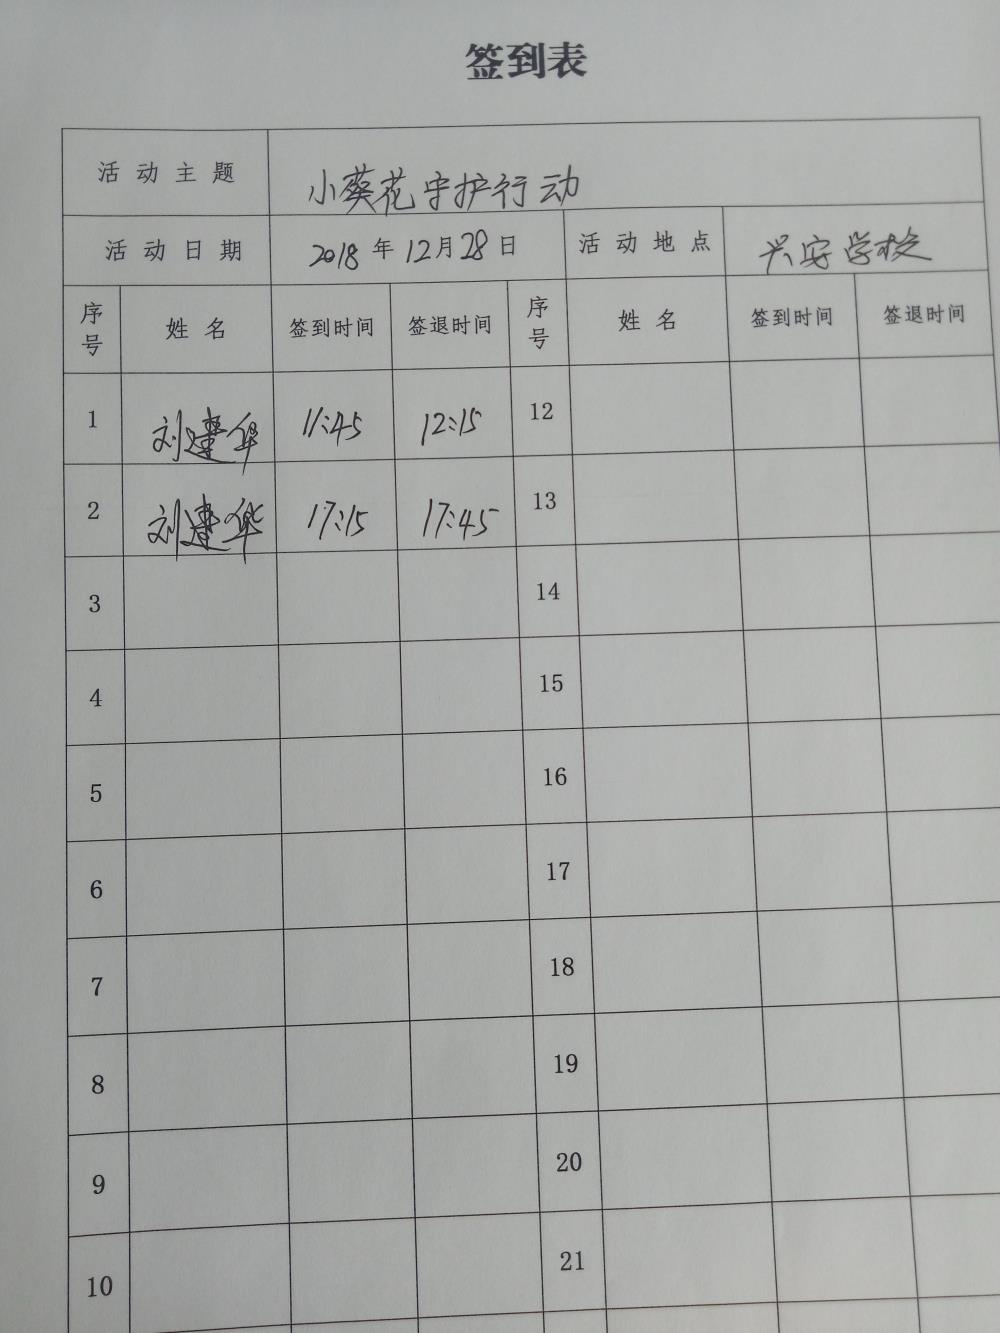 签到表
活动主题 小葵花守护行动
活动日期 2018年12月28日 活动地点 兴安学校
序号 姓名 签到时间 签退时间 序号 姓名 签到时间 签退时间
1 刘建华 11:45 12:15 12
2 刘建华 17:15 17:45 13
3 14
4 15
5 16
6 17
7 18
8 19
9 20
10 21